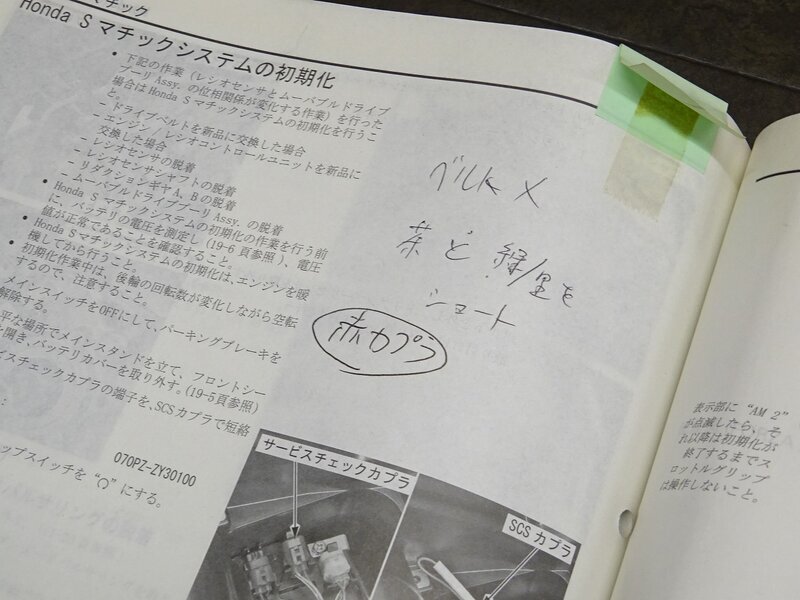 マチック
Honda S マチックシステムの初期化
• 下記の作業（レシオセンサとムーバブルドライブ
プーリ Assy. の位相関係が変化する作業）を行った
場合は Honda S マチックシステムの初期化を行うこ
と。
– ドライブベルトを新品に交換した場合
– エンジン / レシオコントロールユニットを新品に
交換した場合
– レシオセンサの脱着
– レシオセンサシャフトの脱着
– リダクションギヤ A、B の脱着
– ムーバブルドライブプーリ Assy. の脱着
• Honda S マチックシステムの初期化の作業を行う前
に、バッテリの電圧を測定し（19-6 頁参照）、電圧
値が正常であることを確認すること。
• Honda S マチックシステムの初期化は、エンジンを暖
機してから行うこと。
• 初期化作業中は、後輪の回転数が変化しながら空転
するので、注意すること。
メインスイッチを OFF にして、パーキングブレーキを
解除する。
平な場所でメインスタンドを立て、フロントシー
を開き、バッテリカバーを取り外す。（19-5 頁参照）
ビスチェックカプラの端子を、SCS カプラで短絡
070PZ-ZY30100
ップスイッチを “Ω” にする。
サービスチェックカプラ
SCS カプラ
茶 と 緑/
ショート
赤カプラ
表示部に “AM 2”
が点滅したら、そ
れ以降は初期化が
終了するまでス
ロットルグリップ
は操作しないこと。